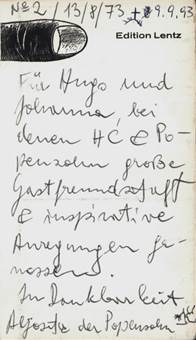 No 2 / 13/8/73 + 29.9.93
Edition Lentz
Für Hugo und
Johanna, bei
denen HC & Po-
penzohn große
Gastfreundschafft
& inspirative
Anregungen ge-
nossen.
In Dankbarkeit
der Popensohn